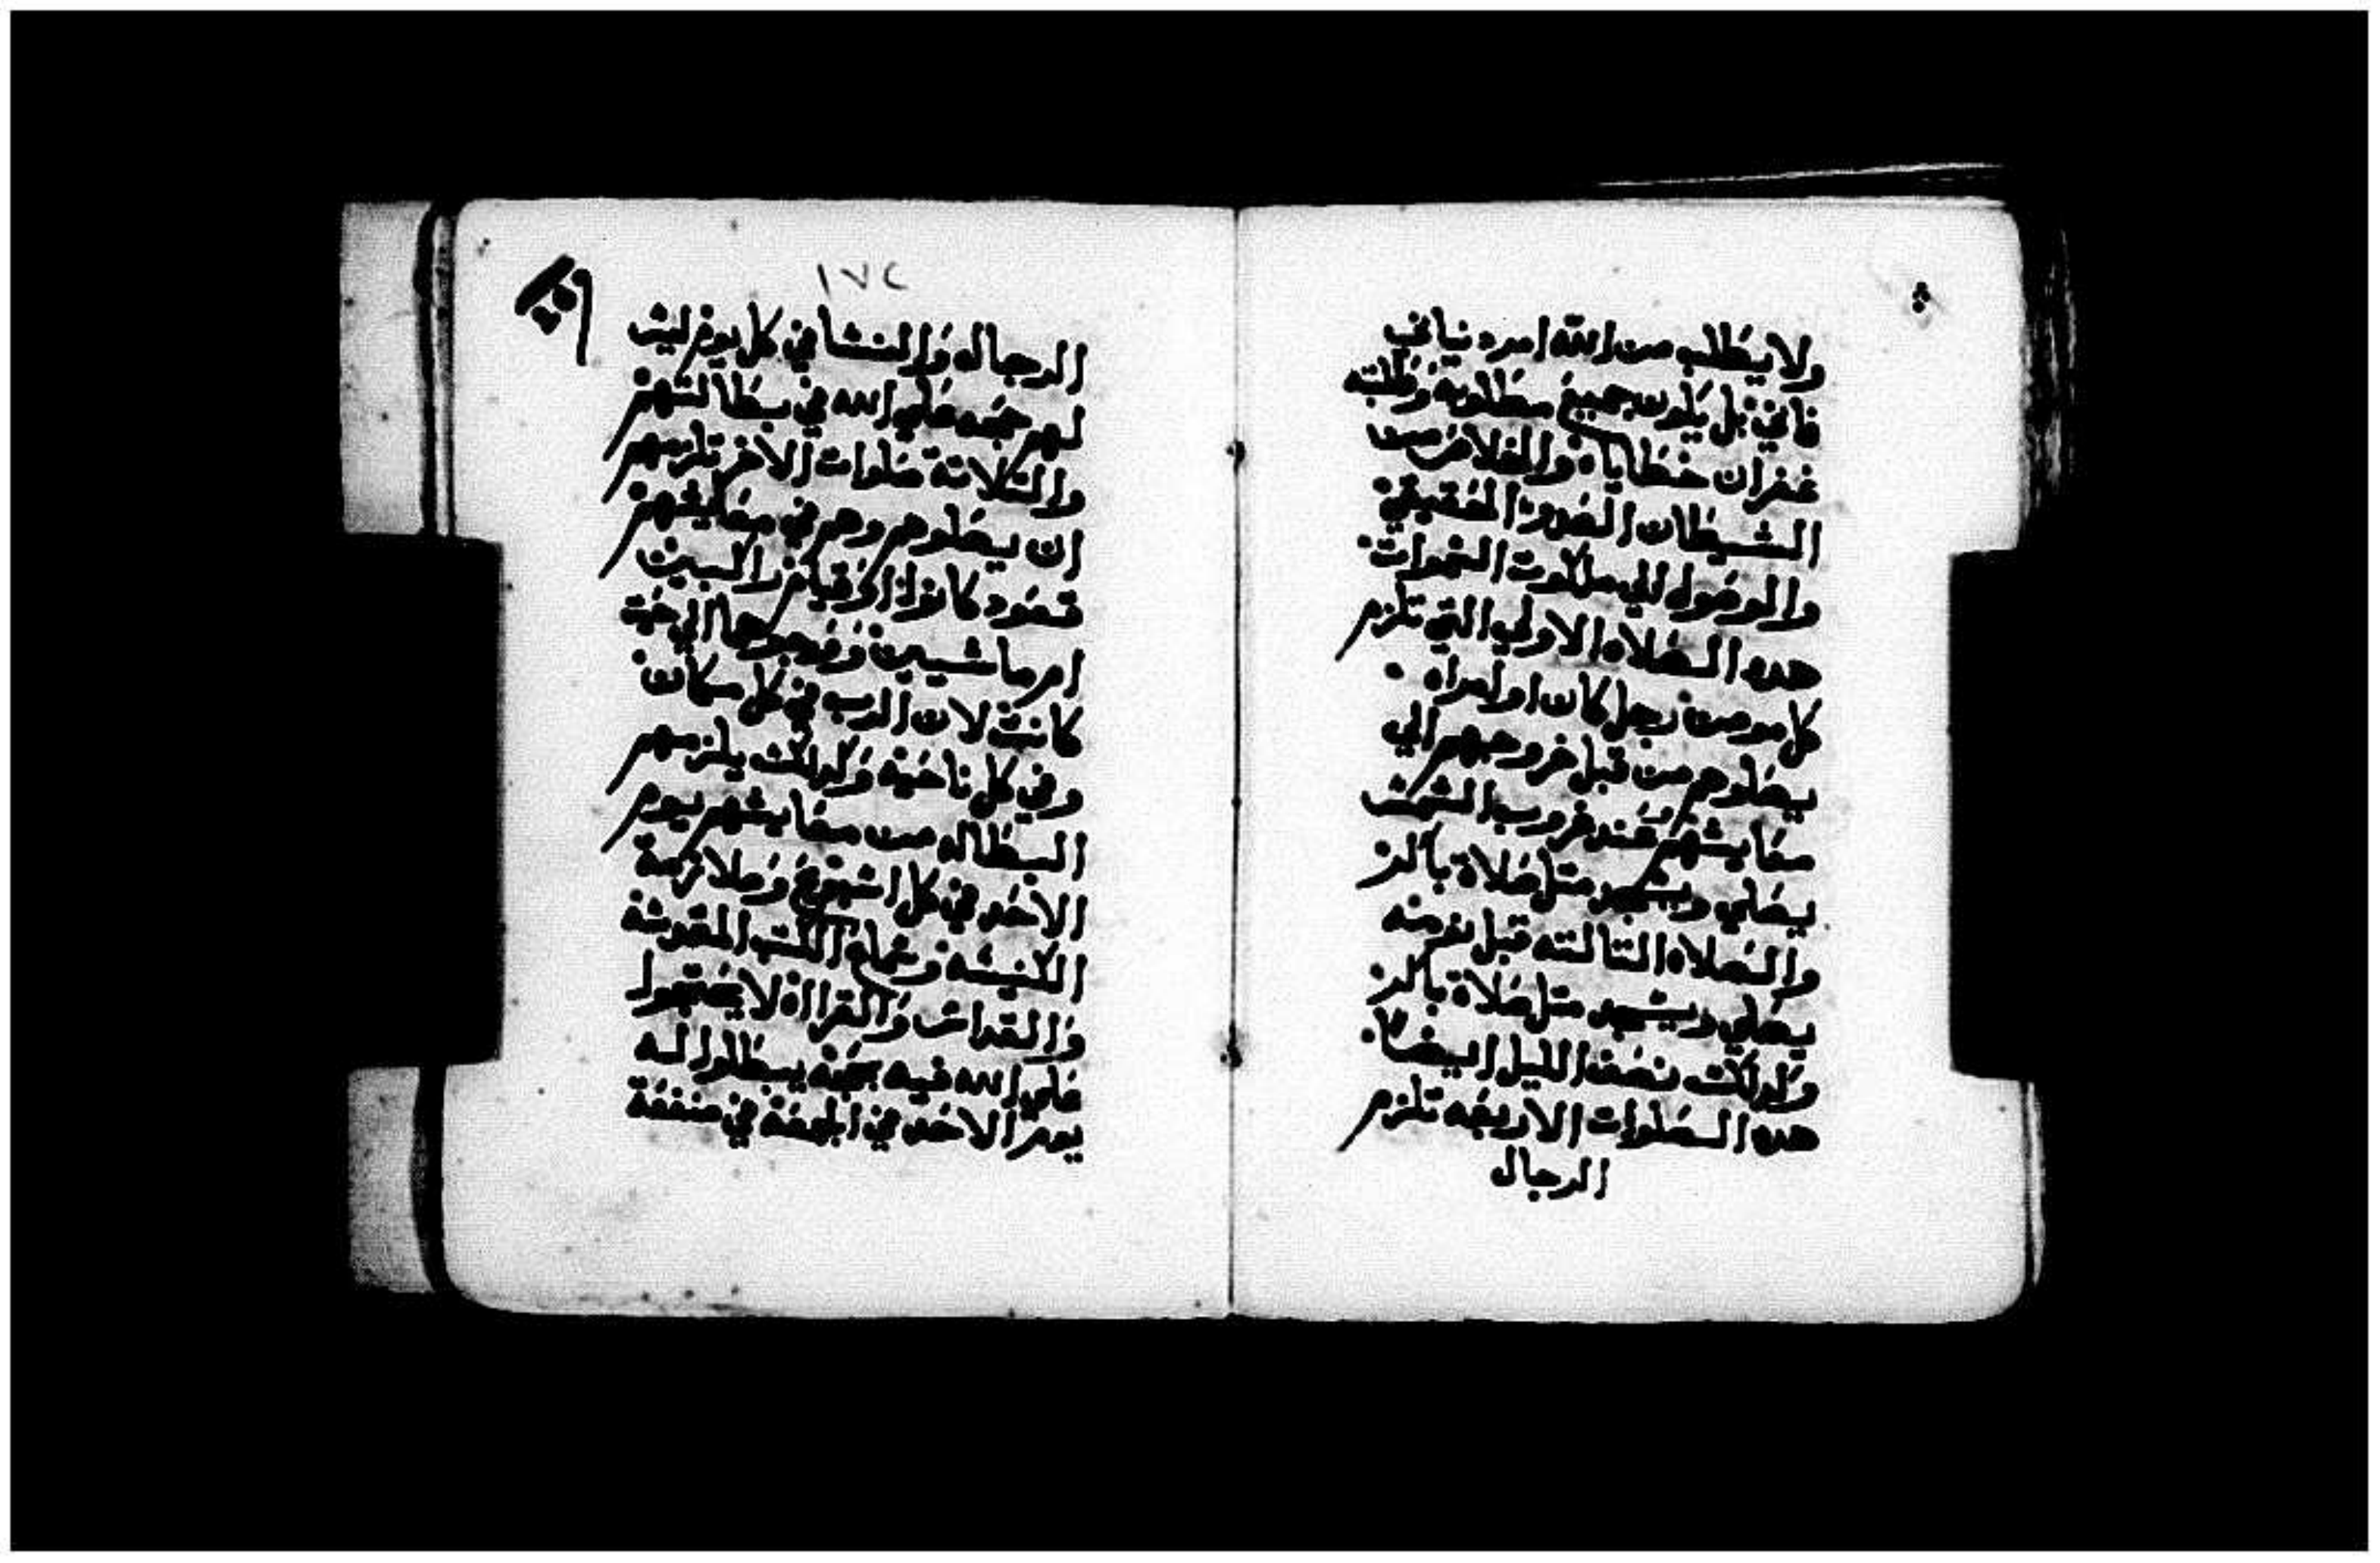 ولا يطلب من الله امر دنياني
فاني بل يكون جميع مطلوبه وطلبته
غفران خطاياه والخلاص من
الشيطان العدو الحقيقي
والوصول الي ملكوت السموات
هده الصلاه الاولي التي تلزم
كل مومن رجل كان او امراه
يصلوهم من قبل خروجهم الي
معايشهم عند غروب الشمس
يصلي ويسجد متل صلاة باكر
والصلاه التالته قبل نومه
يصلي ويسجد متل صلاة باكر
وكدلك نصف الليل ايضا
هده الصلوات الاربعه تلزم
الرجال
١٧٢
الرجال والنسا في كل يوم ليس
لهم حجه علي الله في بطالتهم
والتلاتة صلوات الاخر تلزمهم
ان يصلوهم وهم في معايشهم
قعود كانوا او قيام راكبين
ام ماشيين ووجوههم الي حيت
كانت لان الرب في كل مكان
وفي كل ناحية وكدلك يلزمهم
البطاله من معايشهم يوم
الاحد في كل اسبوع وملازمة
الكنيسه وسماع الكتب المقدسة
والقداس والقرااة لا يحتجوا
علي الله فيه بحجة يبطلوا له
يوم الاحد في الجمعة في منفعة